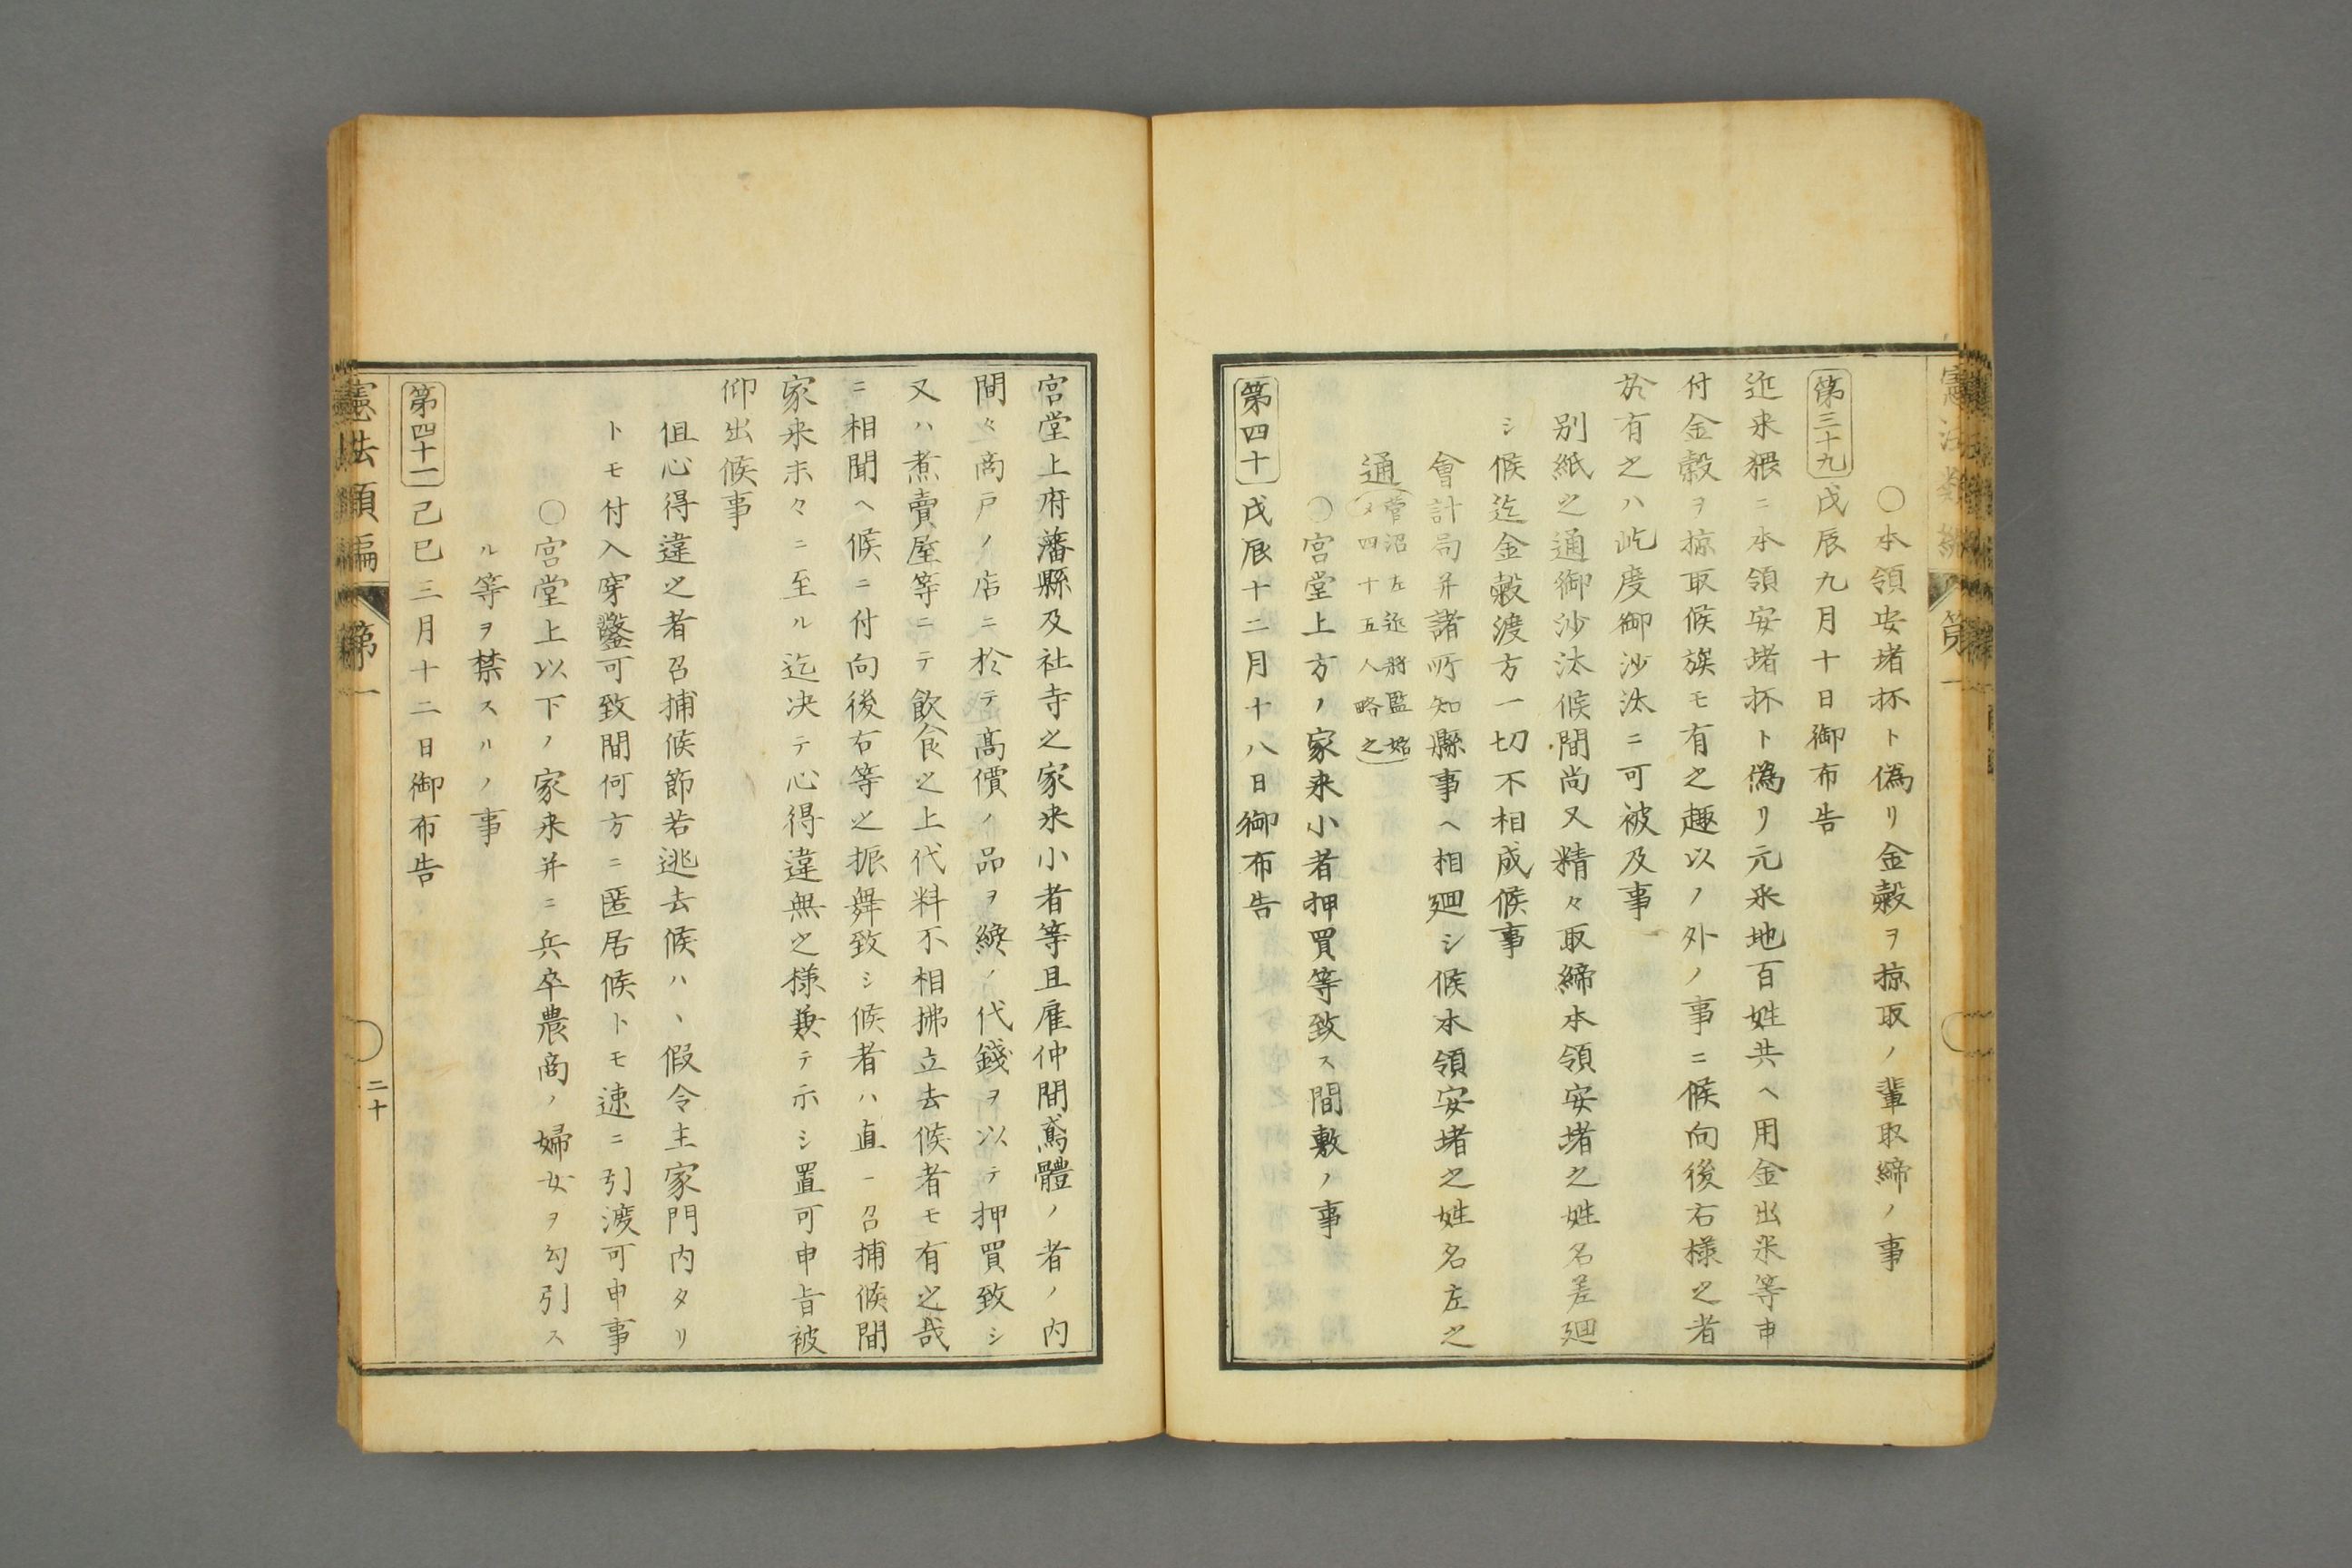 ○本領安堵抔ト偽リ金穀ヲ掠取ノ輩取締ノ事
第三十九 戊辰九月十日御布告
近来猥ニ本領安堵抔ト偽リ元来地百姓共ヘ用金出来等申
付金穀ヲ掠取候族モ有之趣以ノ外ノ事ニ候向後右様之者
於有之ハ屹度御沙汰ニ可被及事
別紙之通御沙汰候間尚又精々取締本領安堵之姓名差廻
シ候迄金穀渡方一切不相成候事
會計局并諸所知縣事ヘ相廻シ候本領安堵之姓名左之
通(菅沼左近将監始
メ四十五人略之)
○宮堂上方ノ家来小者押買等致ス間敷ノ事
第四十 戊辰十二月十八日御布告
宮堂上府藩縣及社寺之家来小者等且雇仲間鳶體ノ者ノ内
間々商戸ノ店ニ於テ高價ノ品ヲ纔ノ代錢ヲ以テ押買致シ
又ハ煮賣屋等ニテ飲食之上代料不相拂立去候者モ有之哉
ニ相聞ヘ候ニ付向後右等之振舞致シ候者ハ直一召捕候間
家来末々ニ至ル迄决テ心得違無之様兼テ示シ置可申旨被
仰出候事
但心得違之者召捕候節若逃去候ハヽ假令主家門内タリ
トモ付入穿鑿可致間何方ニ匿居候トモ速ニ引渡可申事
○宮堂上以下ノ家来并ニ兵卒農商ノ婦女ヲ勾引ス
ル等ヲ禁スルノ事
第四十一 己巳三月十二日御布告
憲法類編 第一 二十